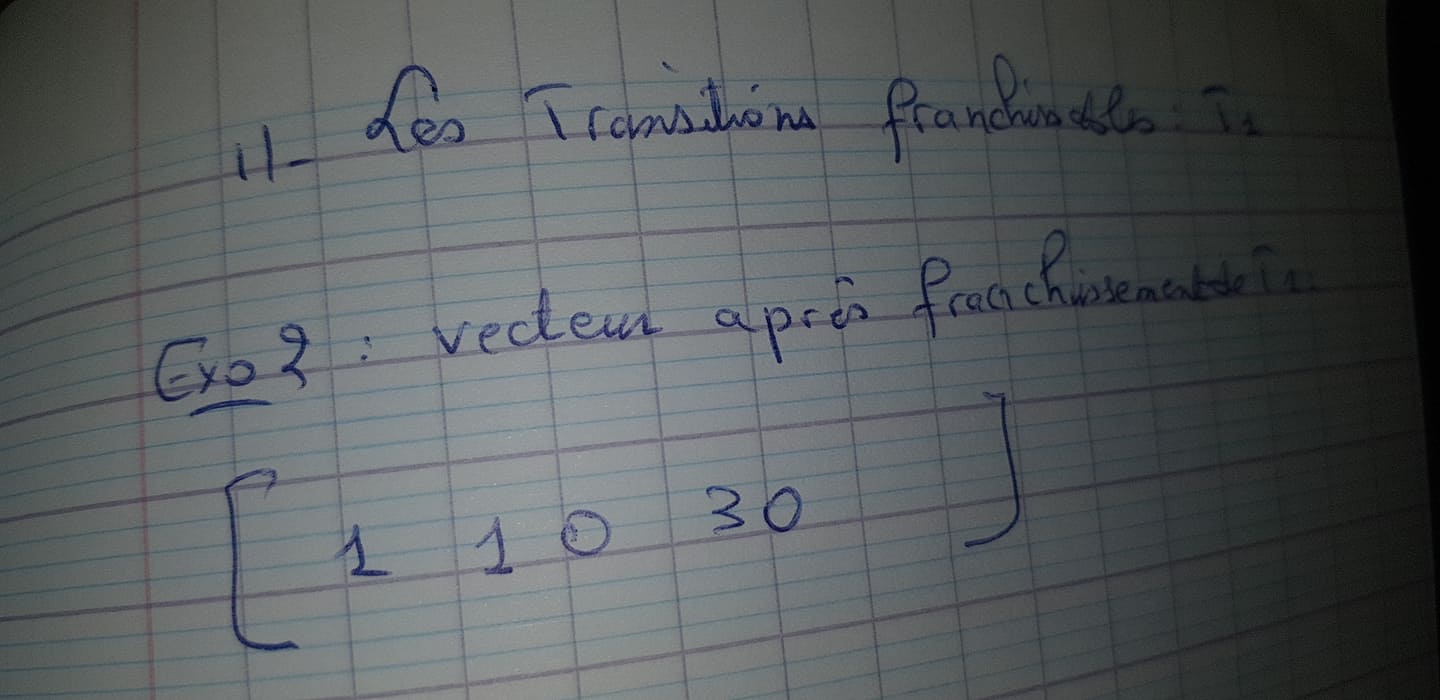 11- Les Transitions franchissables : T1
Exo 2 : vecteur après franchissement de T1.
[ 1 1 0 30 ]